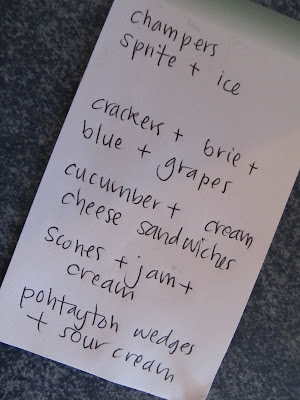 champers
sprite + ice
crackers + brie +
blue + grapes
cucumber + cream
cheese sandwiches
scones + jam +
cream
pohtaytoh wedges
+ sour cream